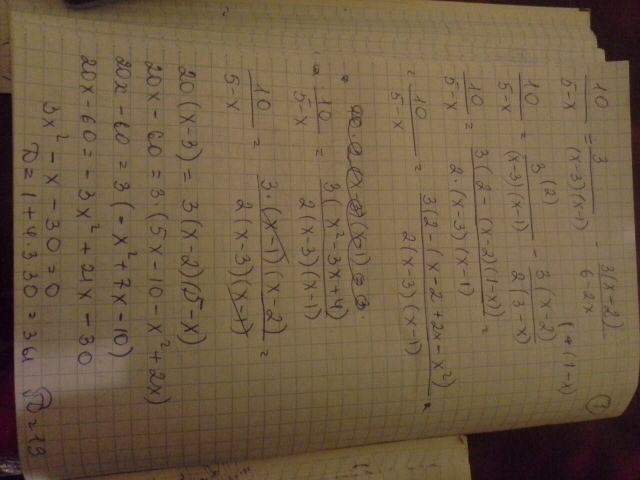 10/(5-x) = 3/((x-3)(x-1)) - 3(x-2)/(6-2x) (*(1-x)
10/(5-x) = 3(2)/((x-3)(x-1)) - 3(x-2)/(2(3-x))
10/(5-x) = 3(2-(x-2)(1-x))/(2·(x-3)(x-1)) =
= 10/(5-x) = 3(2-(x-2+2x-x²)/(2(x-3)(x-1)) =
10/(5-x) = 3(x²-3x+4)/(2(x-3)(x-1))
10/(5-x) = 3·(x-1)(x-2)/(2(x-3)(x-1)) =
20(x-3) = 3(x-2)(5-x)
20x-60 = 3·(5x-10-x²+2x)
20x-60 = 3(-x²+7x-10)
20x-60 = -3x²+21x-30
3x²-x-30=0
D=1+4·330=361 √D=19